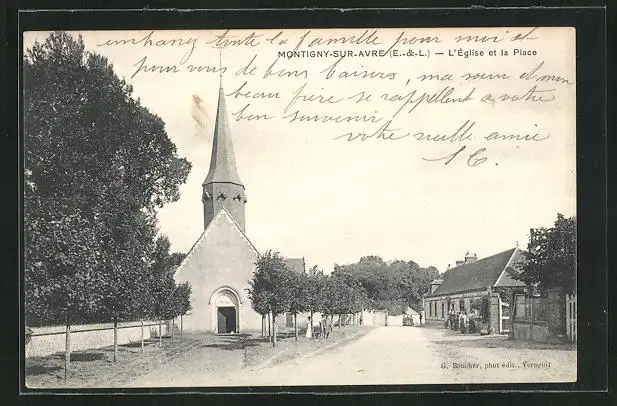 embrassez toute la famille pour moi et
MONTIGNY-SUR-AVRE (E.-&-L.) — L'Église et la Place
pour vous de bons baisers, ma sœur et mon
beau frère se rappellent a votre
bon souvenir
votre vieille amie
G. Boucher, phot édit., Verneuil